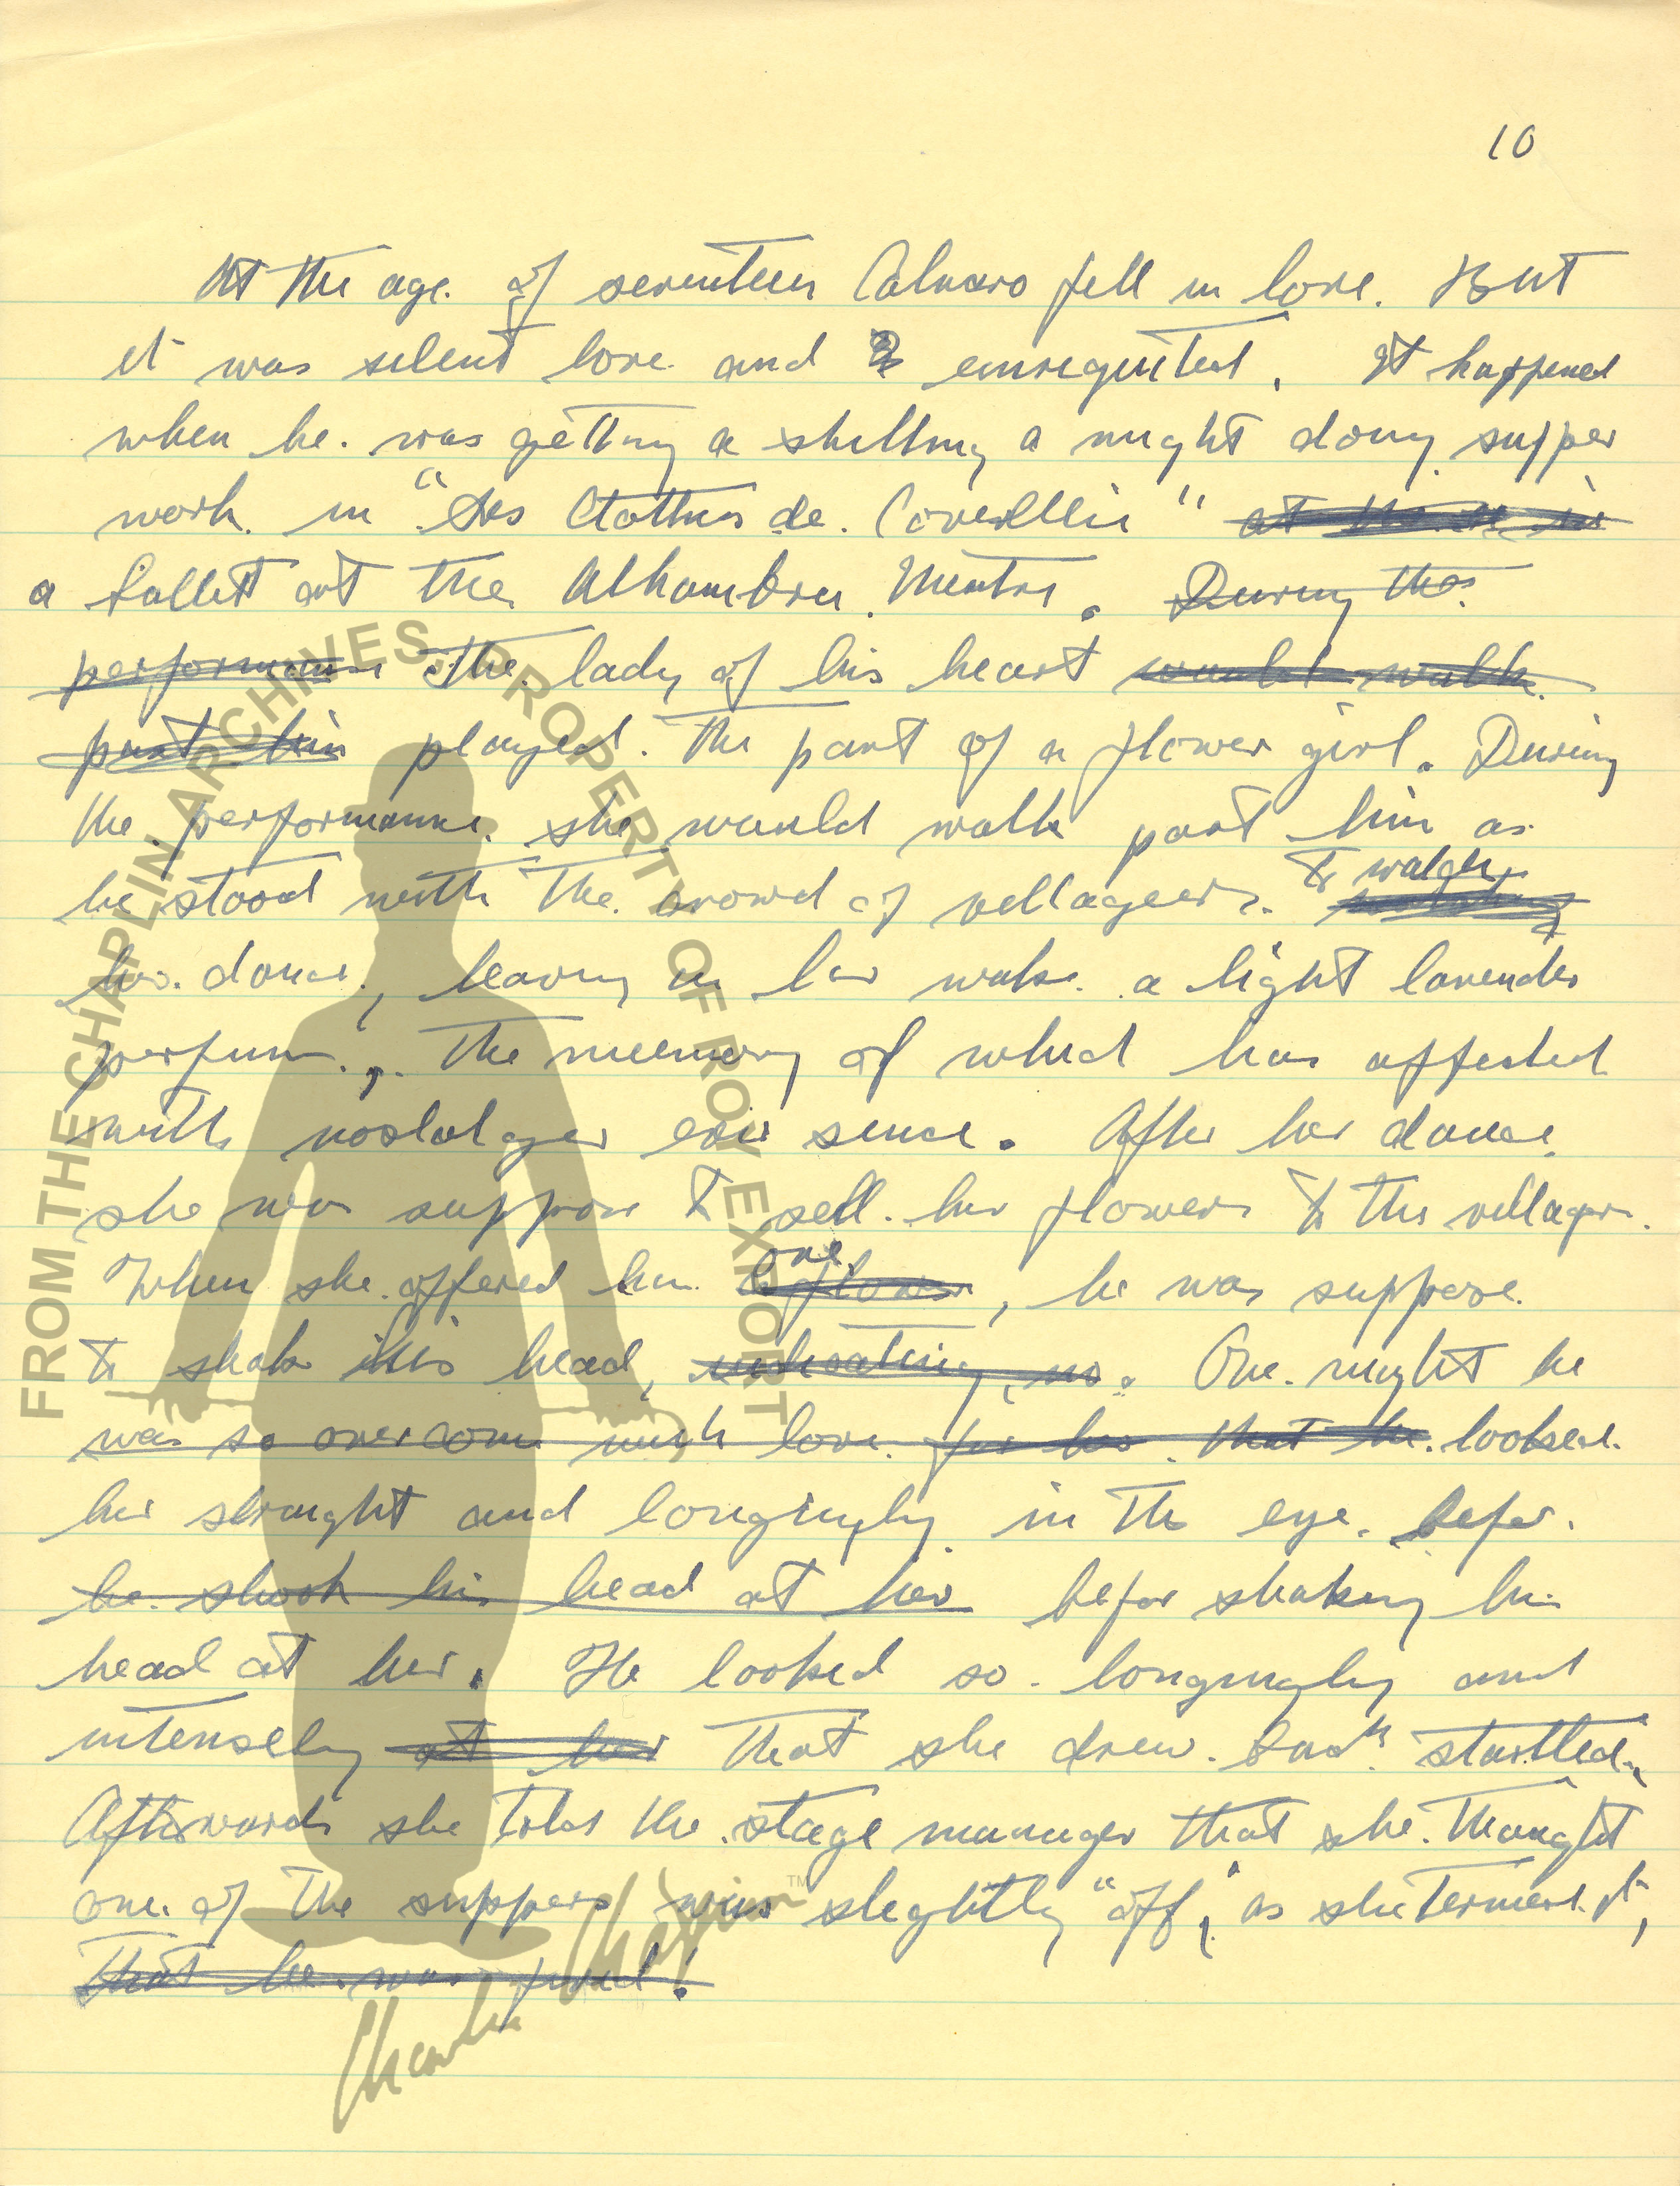 10
At the age of seventeen Calvaro fell in love. But
it was silent love and unrequited. It happened
when he was getting a shilling a night doing supper
work in " de "
a ballett at the Alhambra Theatre. During the
performance The lady of his heart would walk
past him played the part of a flower girl. During
the performance she would walk past him as
he stood with the crowd of villageers to watch
her dance, leaving in her wake a light lavender
perfume, the memory of which has affected
with nostalger ever since. After her dance
she was suppose to sell her flowers to the villagers.
When she offered him a flower one, he was suppose
to shake his head, indicating, no. One night he
was so overcome with love for her that he looked
her straight and longingly in the eye. befor
he shook his head at her befor shaking his
head at her. He looked so longingly and
intensely at her that she drew back startled.
Afterwards she told the stage manager that she thought
one of the suppers was slightly "off," as she termed it,
That he was
FROM THE CHAPLIN ARCHIVES, PROPERTY OF ROY EXPORT
Charlie Chaplin™